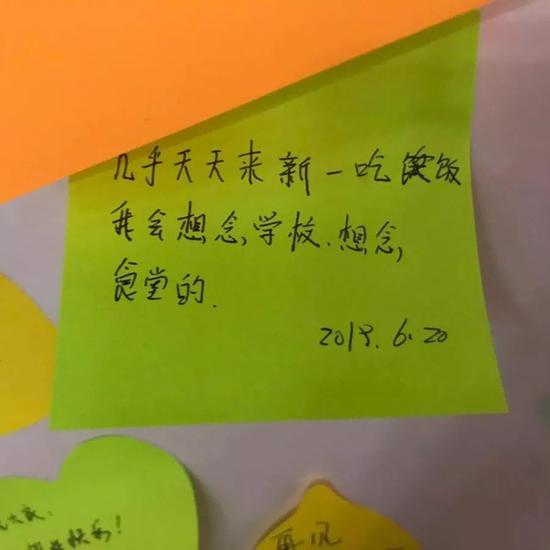 几乎天天来新一吃饭
我会想念学校.想念
食堂的.
2019.6.20
快乐!
再见